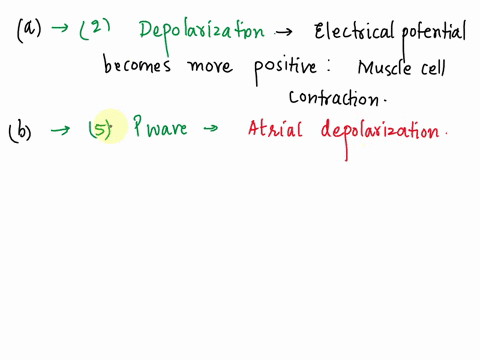 (a) → (2) Depolarization → Electrical potential
becomes more positive : Muscle cell
contraction.
(b) → (5) P wave → Atrial depolarization.